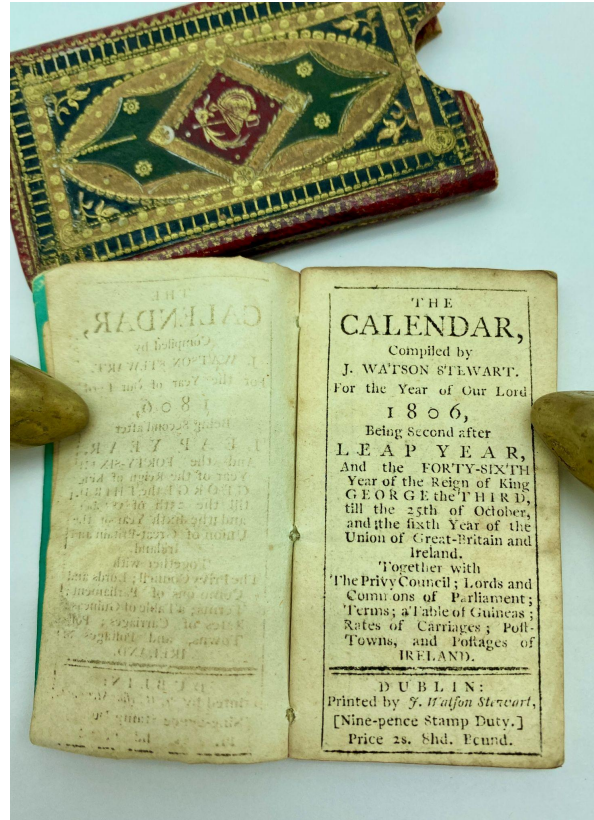 THE
CALENDAR,
Compiled by
J. WATSON STEWART.
For the Year of Our Lord
1806,
Being Second after
LEAP YEAR,
And the FORTY-SIXTH
Year of the Reign of King
GEORGE the THIRD,
till the 25th of October,
and the ſixth Year of the
Union of Great-Britain and
Ireland.
Together with
The Privy Council; Lords and
Commons of Parliament;
Terms; a Table of Guineas;
Rates of Carriages; Poſt-
Towns, and Poſtages of
IRELAND.
DUBLIN:
Printed by J. Watſon Stewart,
[Nine-pence Stamp Duty.]
Price 2s. 8hd. Bound.